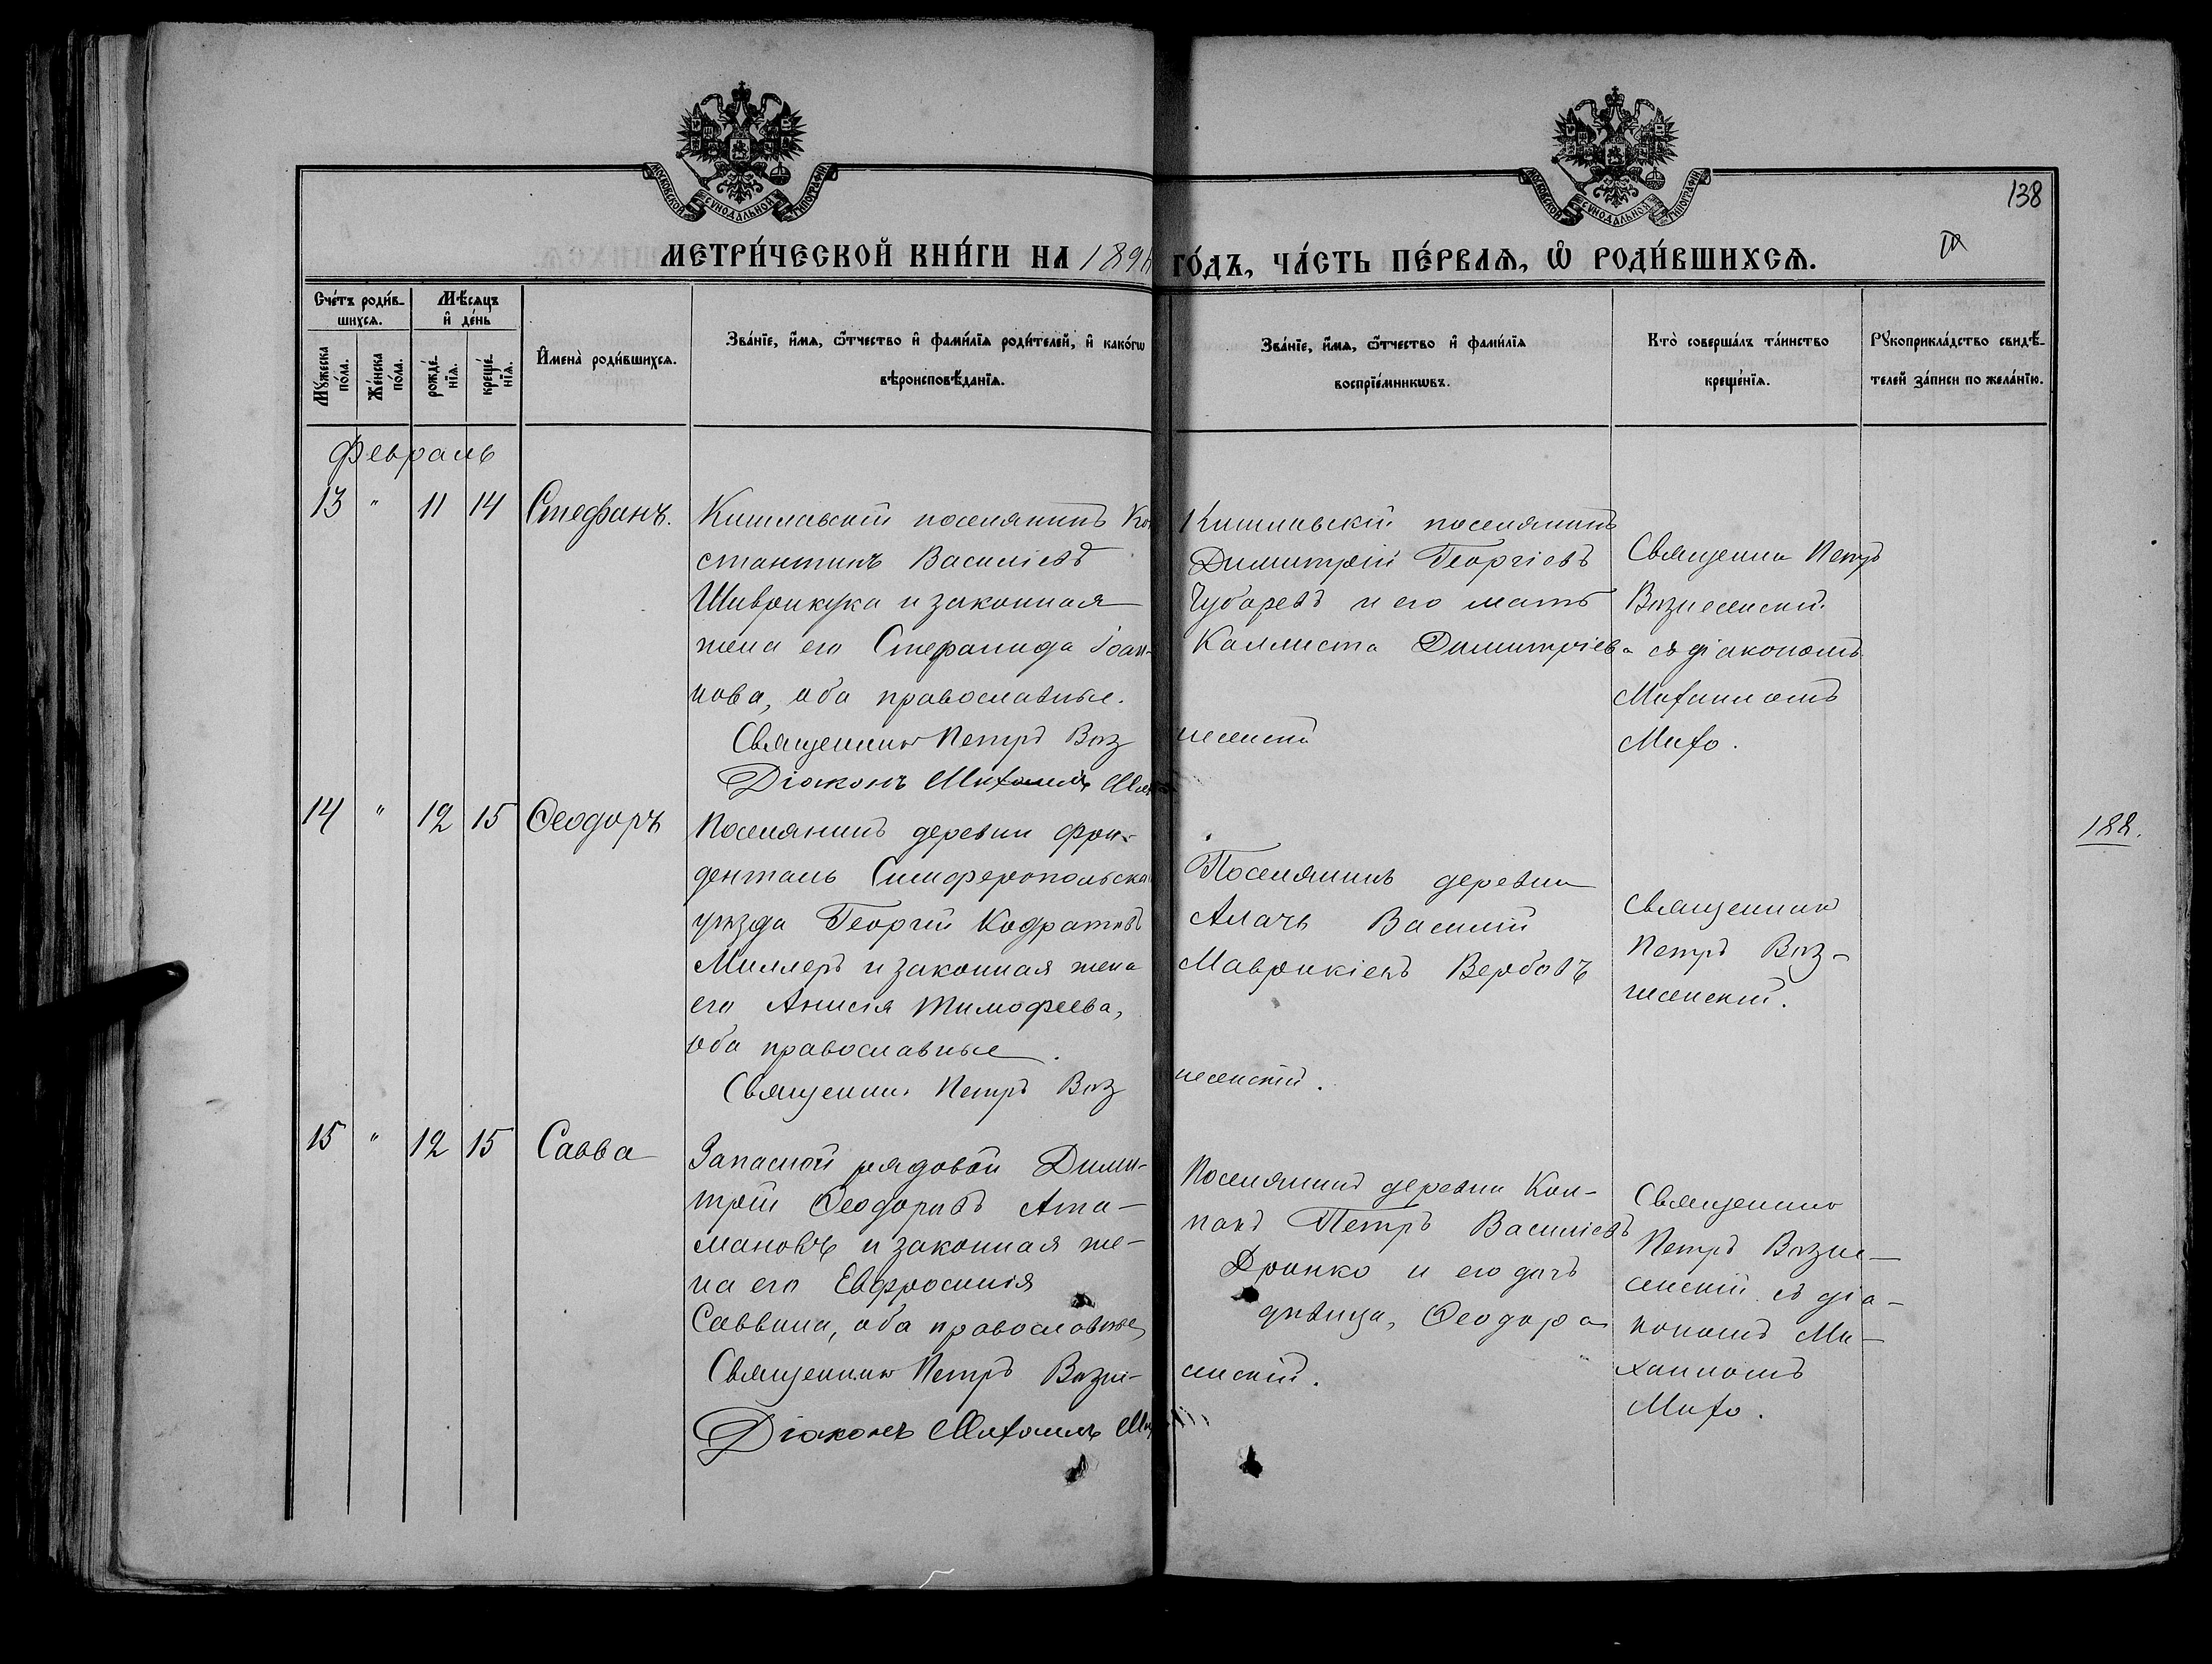 МОСКОВСКОЙ СѴНОДАЛЬНОЙ ТИПОГРАФІИ
МОСКОВСКОЙ СѴНОДАЛЬНОЙ ТИПОГРАФІИ
138
МЕТРИ́ЧЕСКОЙ КНИ́ГИ НА 189 ГО́ДЪ, ЧА́СТЬ ПЕ́РВАѦ, Ѡ҆ РОДИ́ВШИХСѦ.
Сче́тъ роди́в-
шихсѧ.
Мѣ́сяцъ
и҆ де́нь
Мꙋ́жеска
по́ла.
Же́нска
по́ла.
рожде́-
нїѧ.
креще́-
нїѧ.
И҆мена̀ роди́вшихсѧ.
Зва́нїе, и҆́мѧ, ѻ҆́тчество и҆ фами́лїѧ роди́телей, и҆ како́гѡ
вѣроисповѣ́данїѧ.
Зва́нїе, и҆́мѧ, ѻ҆́тчество и҆ фами́лїѧ
воспрїе́мникѡвъ.
Кто̀ соверша́лъ та́инство
креще́нїѧ.
Рꙋкоприкла́дство свидѣ́-
телей за́писи по жела́нїю.
Февраль
13 " 11 14 Стефанъ.
Кишлавскій поселянинъ Кон
стантинъ Василіевъ
Шиврикука и законная
жена его Стефанида Іоан-
нова, оба православные.
Священникъ Петръ Воз
несенскій
Діаконъ Михаилъ
Кишлавскій поселянинъ
Димитрій Георгіевъ
Чубаревъ и его мать
Каллиста Димитріева
Священник Петръ
Вознесенскій
съ діакономъ
Михаиломъ
Михо.
14 " 12 15 Ѳеодоръ
Поселянинъ деревни Фри-
денталь Симферопольска
уѣзда Георгій Кодратовъ
Миллеръ и законная жена
его Анисія Тимофеева,
оба православные.
Священник Петръ Воз
несенскій.
Поселянинъ деревни
Алачъ Василій
Маврикіевъ Вербовъ
Священник
Петръ Воз-
несенскій.
188.
15 " 12 15 Савва
Запасной рядовой Дими-
трій Ѳеодоровъ Ата-
мановъ и законная же-
на его Евфросинія
Саввина, оба православные
Священникъ Петръ Возне-
сенскій.
Діаконъ Михаилъ
Поселянинъ деревни Кол-
пакъ Петръ Василіевъ
Дранко и его дочь
дѣвица, Ѳеодора
Священникъ
Петръ Возне-
сенскій съ діа-
кономъ Ми-
хаиломъ
Михо.